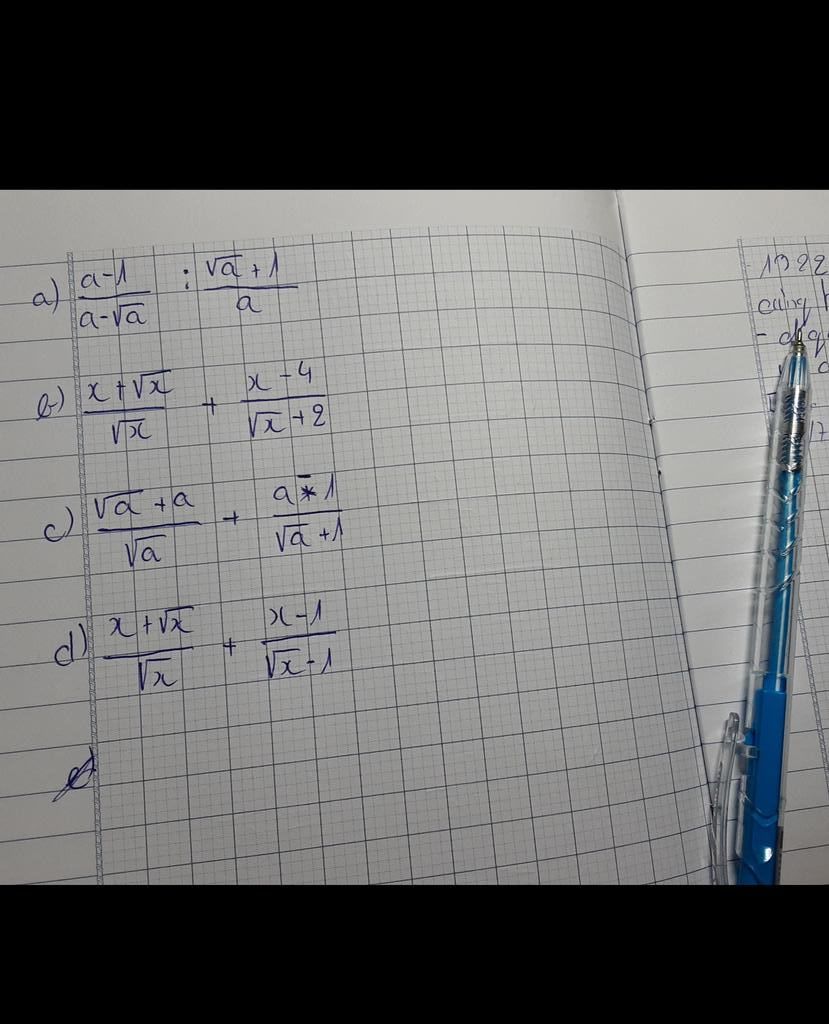 a) (a-1)/(a-√a) : (√a+1)/a
b) (x+√x)/√x + (x-4)/(√x+2)
c) (√a+a)/√a + (a-1)/(√a+1)
d) (x+√x)/√x + (x-1)/(√x-1)
1922